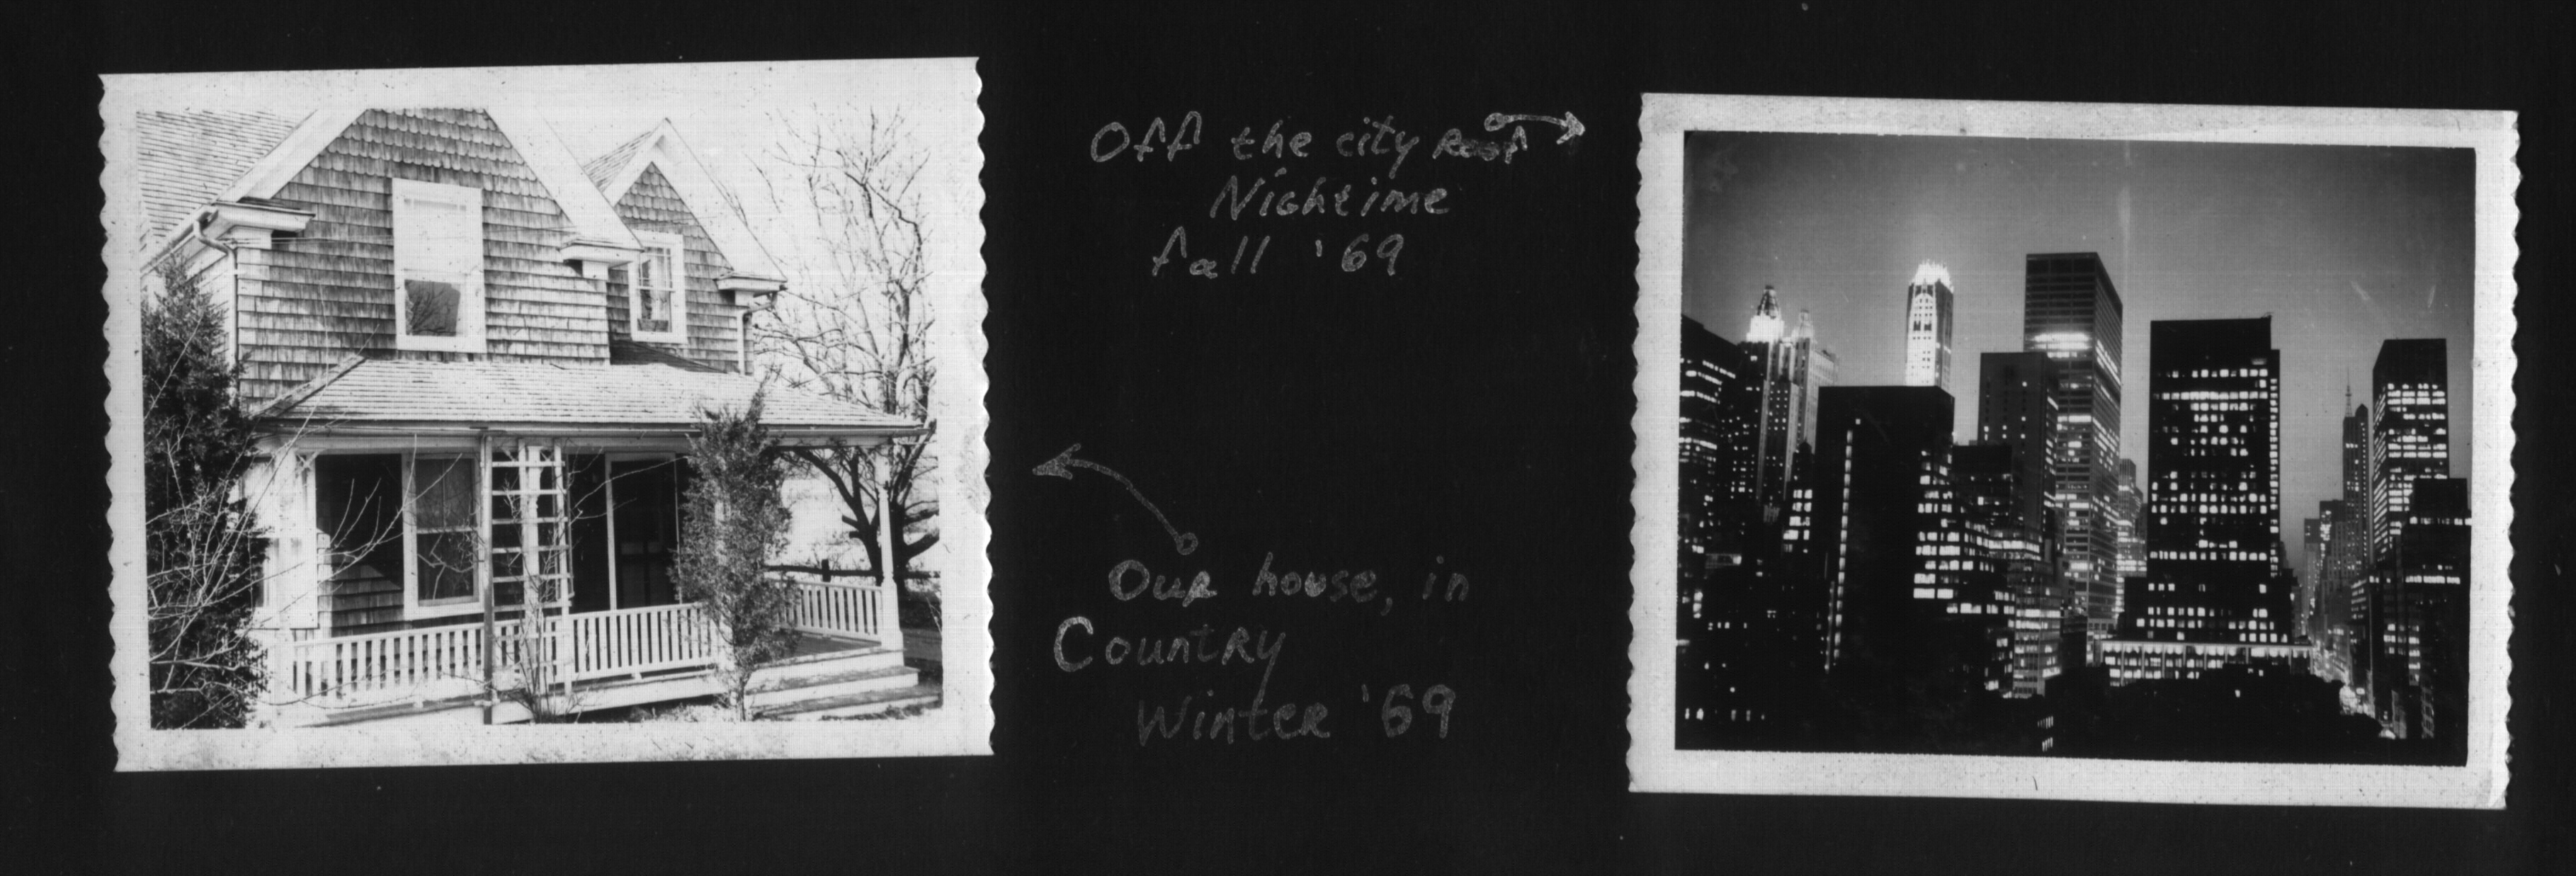 Off the city Roof
Nightime
fall '69
Our house, in
Country
Winter '69